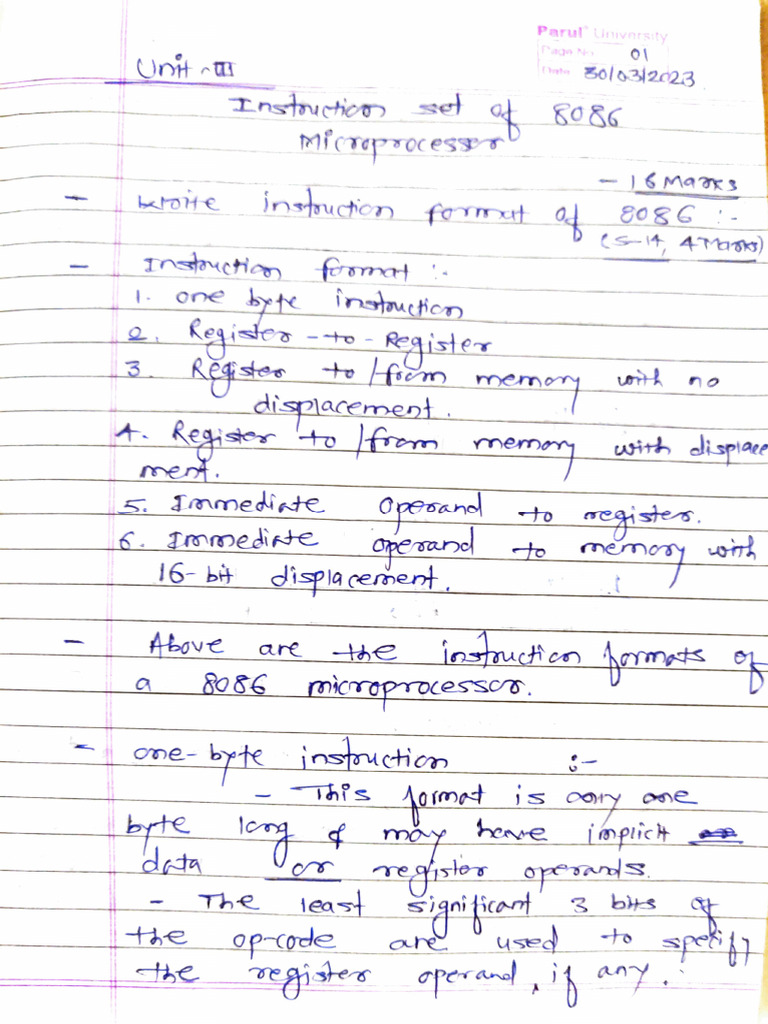 Parul® University
Page No. 01
Date 30/03/2023
Unit-III
Instruction set of 8086
Microprocessor
- 16 Marks
- Write instruction format of 8086 :-
(S-14, 4 Marks)
- Instruction format :-
1. one byte instruction
2. Register-to-Register
3. Register to/from memory with no
displacement.
4. Register to/from memory with displace
ment.
5. Immediate operand to register.
6. Immediate operand to memory with
16-bit displacement.
- Above are the instruction formats of
a 8086 microprocessor.
- one-byte instruction :-
- This format is only one
byte long & may have implicit
data or register operands.
- The least significant 3 bits of
the op-code are used to specify
the register operand, if any.